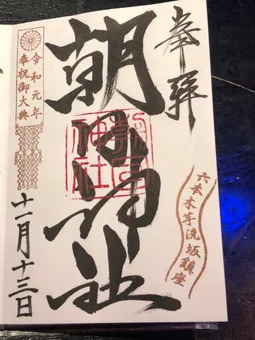 奉拝
六本木芋洗坂鎮座
朝日神社
朝日神社
令和元年
奉祝御大典
十一月十三日